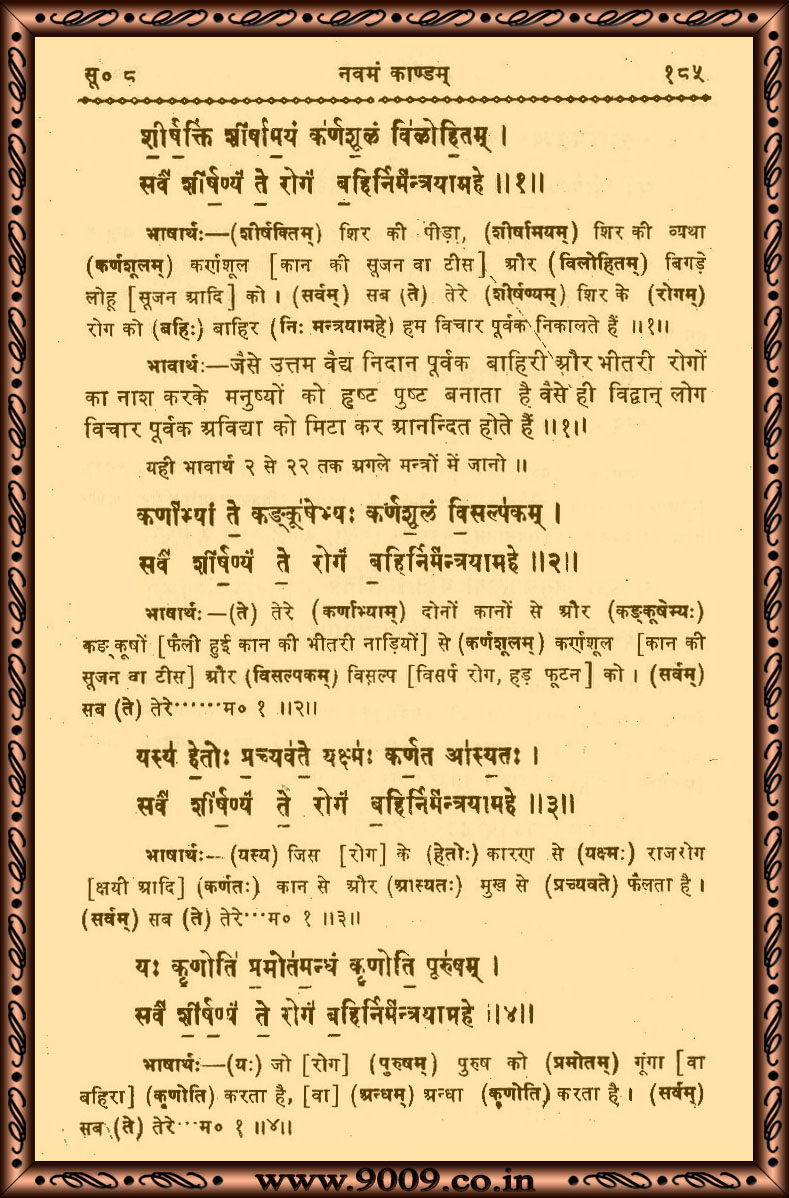 सू० ८ नवमं काण्डम् १८५
शी॒र्ष॒क्तिं शी॑र्षाम॒यं क॑र्णशू॒लं वि॑लोहि॒तम् ।
सर्वं॑ शीर्ष॒ण्यं॑ ते॒ रोगं॑ ब॒हिर्निर्म॑न्त्रयामहे ॥१॥
भाषार्थः—(शीर्षक्तिम्) शिर की पीड़ा, (शीर्षामयम्) शिर की व्यथा
(कर्णशूलम्) कर्णशूल [कान की सूजन वा टीस] और (विलोहितम्) बिगड़े
लोहू [सूजन आदि] को । (सर्वम्) सब (ते) तेरे (शीर्षण्यम्) शिर के (रोगम्)
रोग को (बहिः) बाहिर (निः मन्त्रयामहे) हम विचार पूर्वक निकालते हैं ॥१॥
भावार्थः—जैसे उत्तम वैद्य निदान पूर्वक बाहिरी और भीतरी रोगों
का नाश करके मनुष्यों को हृष्ट पुष्ट बनाता है वैसे ही विद्वान् लोग
विचार पूर्वक अविद्या को मिटा कर आनन्दित होते हैं ॥१॥
यही भावार्थ २ से २२ तक अगले मन्त्रों में जानो ॥
कर्णा॑भ्यां ते॒ कङ्कू॑षेभ्यः कर्णशू॒लं वि॒सल्प॑कम् ।
सर्वं॑ शीर्ष॒ण्यं॑ ते॒ रोगं॑ ब॒हिर्निर्म॑न्त्रयामहे ॥२॥
भाषार्थः—(ते) तेरे (कर्णाभ्याम्) दोनों कानों से और (कङ्कूषेभ्यः)
कङ्कूषों [फैली हुई कान की भीतरी नाड़ियों] से (कर्णशूलम्) कर्णशूल [कान की
सूजन वा टीस] और (विसल्पकम्) विसल्प [विसर्प रोग, हड़ फूटन] को । (सर्वम्)
सब (ते) तेरे······म० १ ॥२॥
यस्य॑ हे॒तोः प्र॒च्यव॑ते॒ यक्ष्मः॑ कर्ण॒त आ॑स्य॒तः ।
सर्वं॑ शीर्ष॒ण्यं॑ ते॒ रोगं॑ ब॒हिर्निर्म॑न्त्रयामहे ॥३॥
भाषार्थः—(यस्य) जिस [रोग] के (हेतोः) कारण से (यक्ष्मः) राजरोग
[क्षयी आदि] (कर्णतः) कान से और (आस्यतः) मुख से (प्रच्यवते) फैलता है ।
(सर्वम्) सब (ते) तेरे···म० १ ॥३॥
यः कृ॒णोति॑ प्र॒मोत॑म॒न्धं कृ॒णोति॒ पूरु॑षम् ।
सर्वं॑ शीर्ष॒ण्यं॑ ते॒ रोगं॑ ब॒हिर्निर्म॑न्त्रयामहे ॥४॥
भाषार्थः—(यः) जो [रोग] (पुरुषम्) पुरुष को (प्रमोतम्) गूंगा [वा
बहिरा] (कृणोति) करता है, [वा] (अन्धम्) अन्धा (कृणोति) करता है । (सर्वम्)
सब (ते) तेरे···म० १ ॥४॥
www.9009.co.in